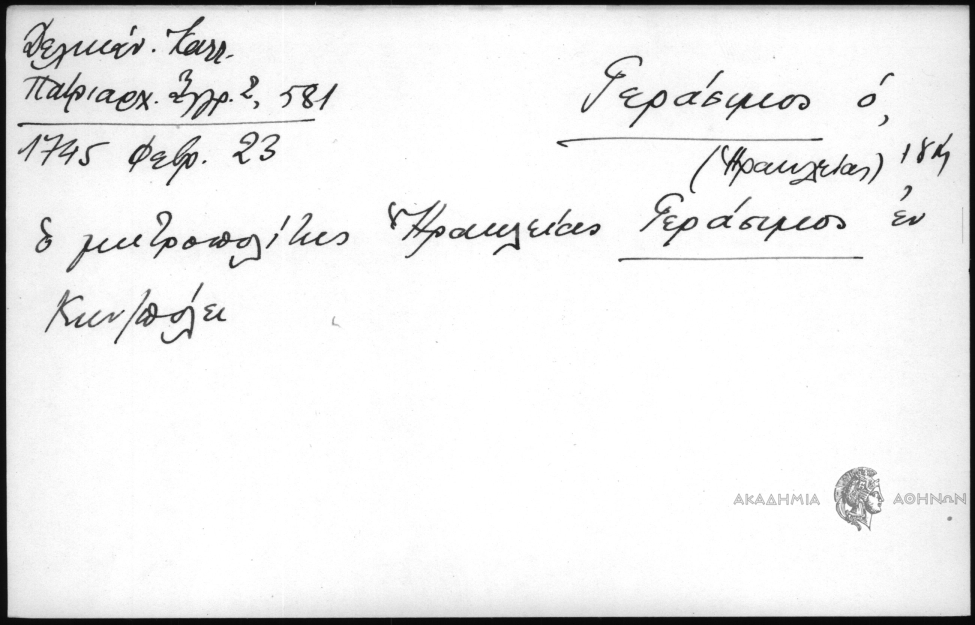 Δελικάν. Καλλ.
Πατριαρχ. Ἔγγρ. 2, 581
1745 Φεβρ. 23
Γεράσιμος ὁ,
(Ἡρακλείας) 18
Ὁ μητροπολίτης Ἡρακλείας Γεράσιμος ἐν
Κων/πόλει
ΑΚΑΔΗΜΙΑ ΑΘΗΝΩΝ